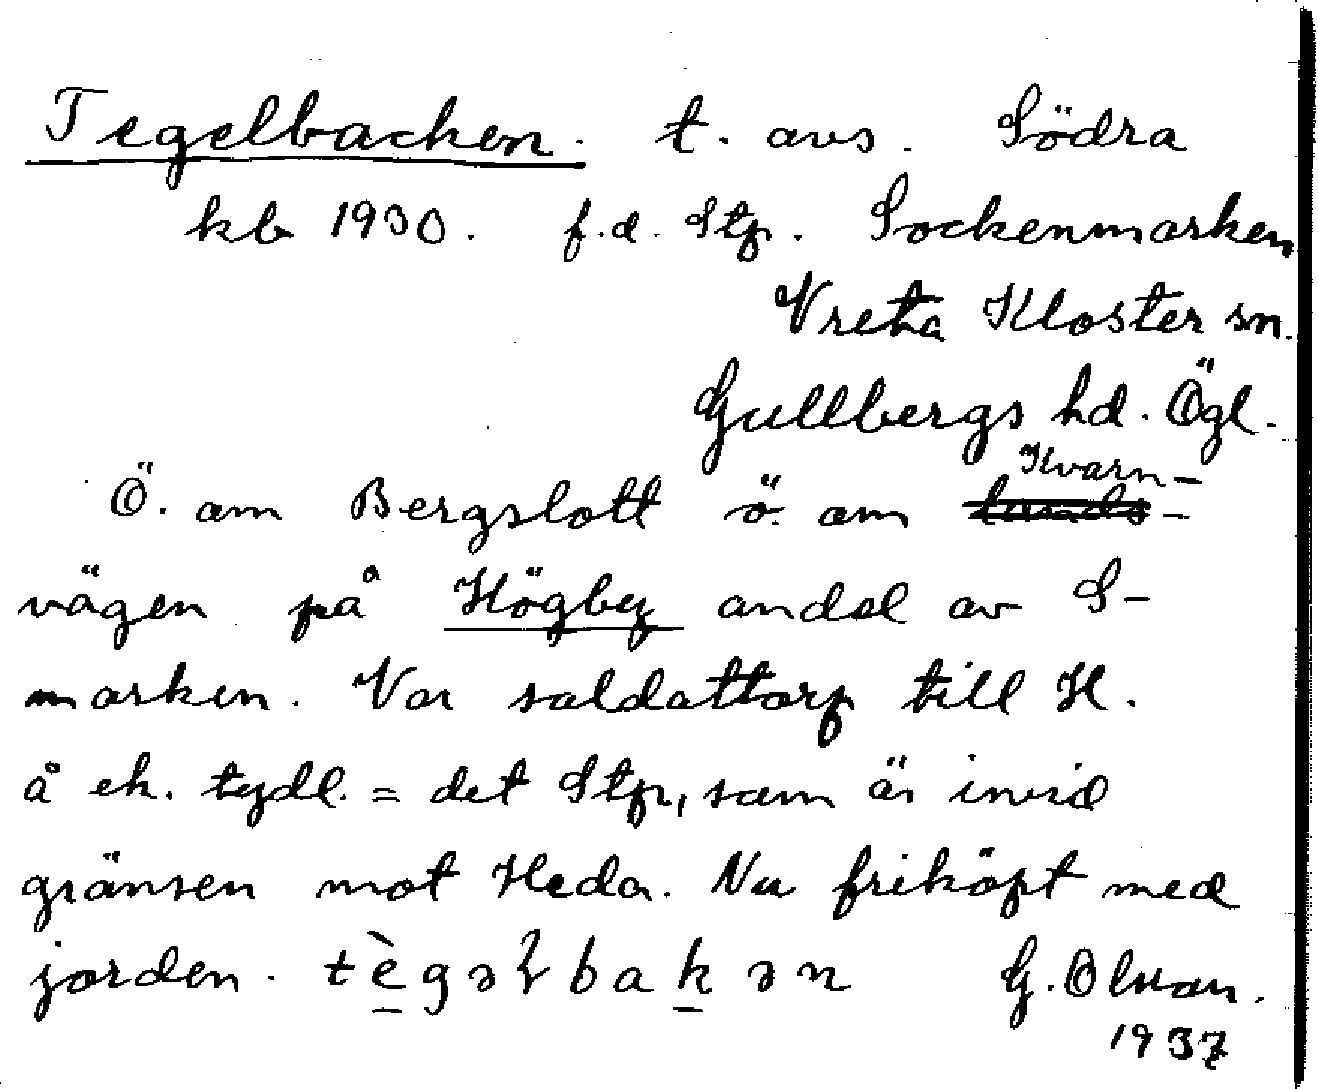 Tegelbacken. t. avs. Södra
kb 1930. f.d. Stp. Sockenmarken
Vreta Kloster sn.
Gullbergs hd. Ögl.
Ö. om Bergslott ö. om Kvarn-
vägen på Högby andel av S-
marken. Var soldattorp till H.
å ek. tydl. = det Stp, som är invid
gränsen mot Heda. Nu friköpt med
jorden. tègəɫbakən G. Olson.
1937